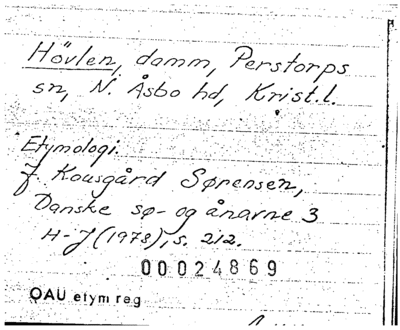 Hövlen, damm, Perstorps
sn, N. Åsbo hd, Krist.l.
Etymologi.
J. Kousgård Sørensen,
Danske sø- og ånavne 3
H-J (1978), s. 212.
00024869
OAU etym reg